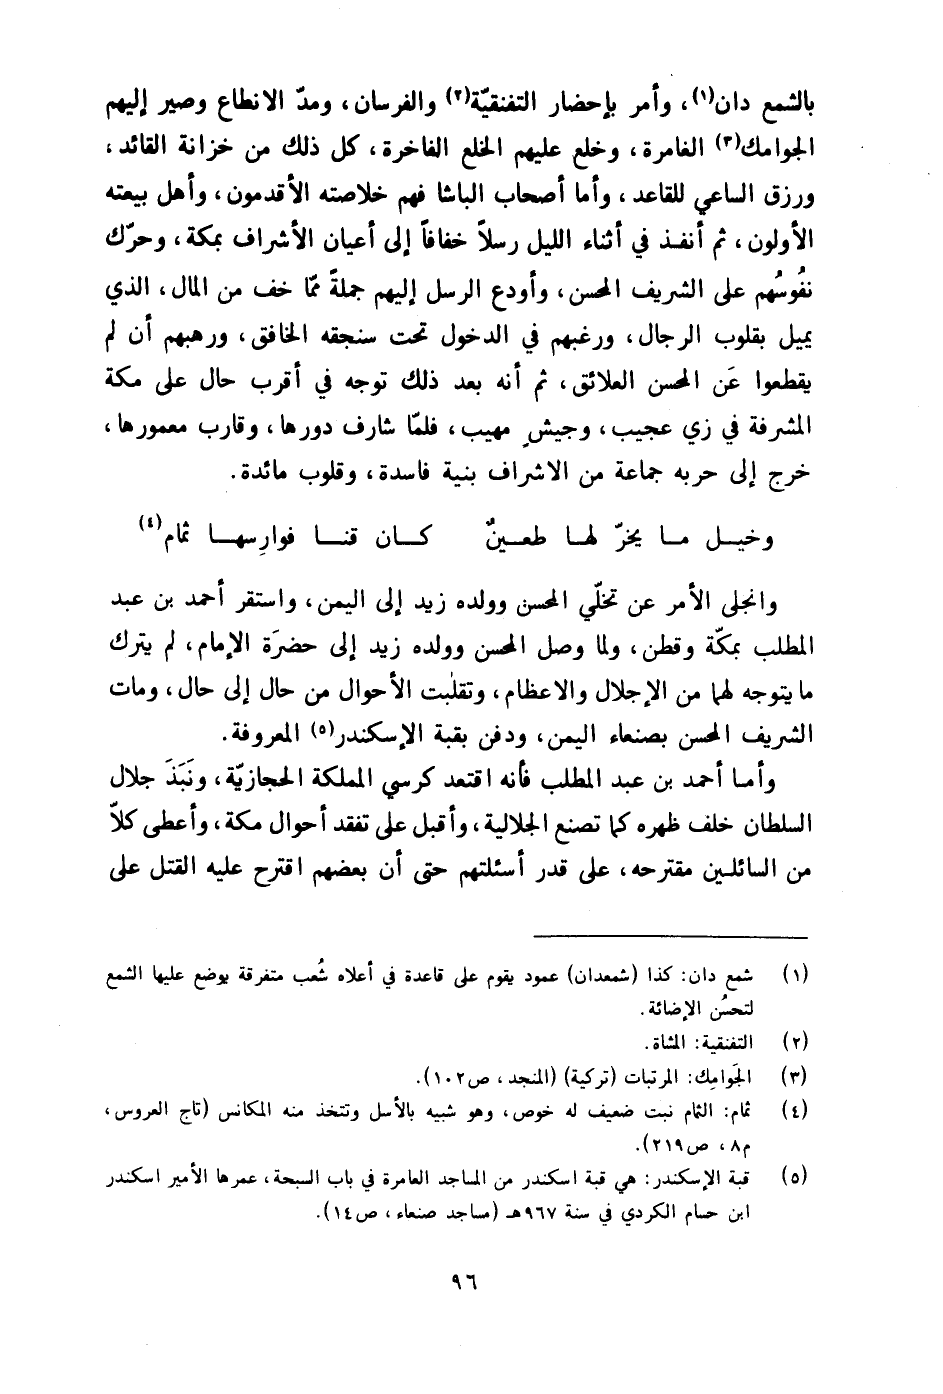 بالشمع دان(١)، وأمر بإحضار التفنقيّة(٢) والفرسان، ومدّ الانطاع وصير إليهم
الجوامك(٣) الغامرة، وخلع عليهم الخلع الفاخرة، كل ذلك من خزانة القائد،
ورزق الساعي للقاعد، وأما أصحاب الباشا فهم خلاصته الأقدمون، وأهل بيعته
الأولون، ثم أنفذ في أثناء الليل رسلاً خفافاً إلى أعيان الأشراف بمكة، وحرّك
نفُوسُهم على الشريف المحسن، وأودع الرسل إليهم جملةً ممّا خف من المال، الذي
يميل بقلوب الرجال، ورغبهم في الدخول تحت سنجقه الخافق، ورهبهم أن لم
يقطعوا عَن المحسن العلائق، ثم أنه بعد ذلك توجه في أقرب حال على مكة
المشرفة في زي عجيب، وجيشٍ مهيب، فلمّا شارف دورها، وقارب معمورها،
خرج إلى حربه جماعة من الاشراف بنية فاسدة، وقلوب مائدة.
وخيـــل مـــا يخرّ لهـــا طعـــينٌ كـــان قنـــا فوارِسهـــا ثمام(٤)
وانجلى الأمر عن تخلّي المحسن وولده زيد إلى اليمن، واستقر أحمد بن عبد
المطلب بمكّة وقطن، ولما وصل المحسن وولده زيد إلى حضرَة الإمام، لم يترك
ما يتوجه لهما من الإجلال والاعظام، وتقلبت الأحوال من حال إلى حال، ومات
الشريف المحسن بصنعاء اليمن، ودفن بقبة الإسكندر(٥) المعروفة.
وأمـا أحمد بن عبد المطلب فأنه اقتعد كرسي المملكة الحجازيّة، ونَبَذَ جلال
السلطان خلف ظهره كما تصنع الجلالية، وأقبل على تفقد أحوال مكة، وأعطى كلاّ
من السائلـين مقترحه، على قدر أسئلتهم حتى أن بعضهم اقترح عليه القتل على
(١) شمع دان: كذا (شمعدان) عمود يقوم على قاعدة في أعلاه شُعب متفرقة يوضع عليها الشمع
لتحسُن الإضائة.
(٢) التفنقية: المشاة.
(٣) الجَوامِك: المرتبات (تركية) (المنجد، ص١٠٢).
(٤) ثمام: الثمام نبت ضعيف له خوص، وهو شبيه بالأسل وتتخذ منه المكانس (تاج العروس،
م٨، ص٢١٩).
(٥) قبة الإسكندر: هي قبة اسكندر من المساجد العامرة في باب السبحة، عمرها الأمير اسكندر
ابن حسام الكردي في سنة ٩٦٧هـ (مساجد صنعاء، ص١٤).
٩٦